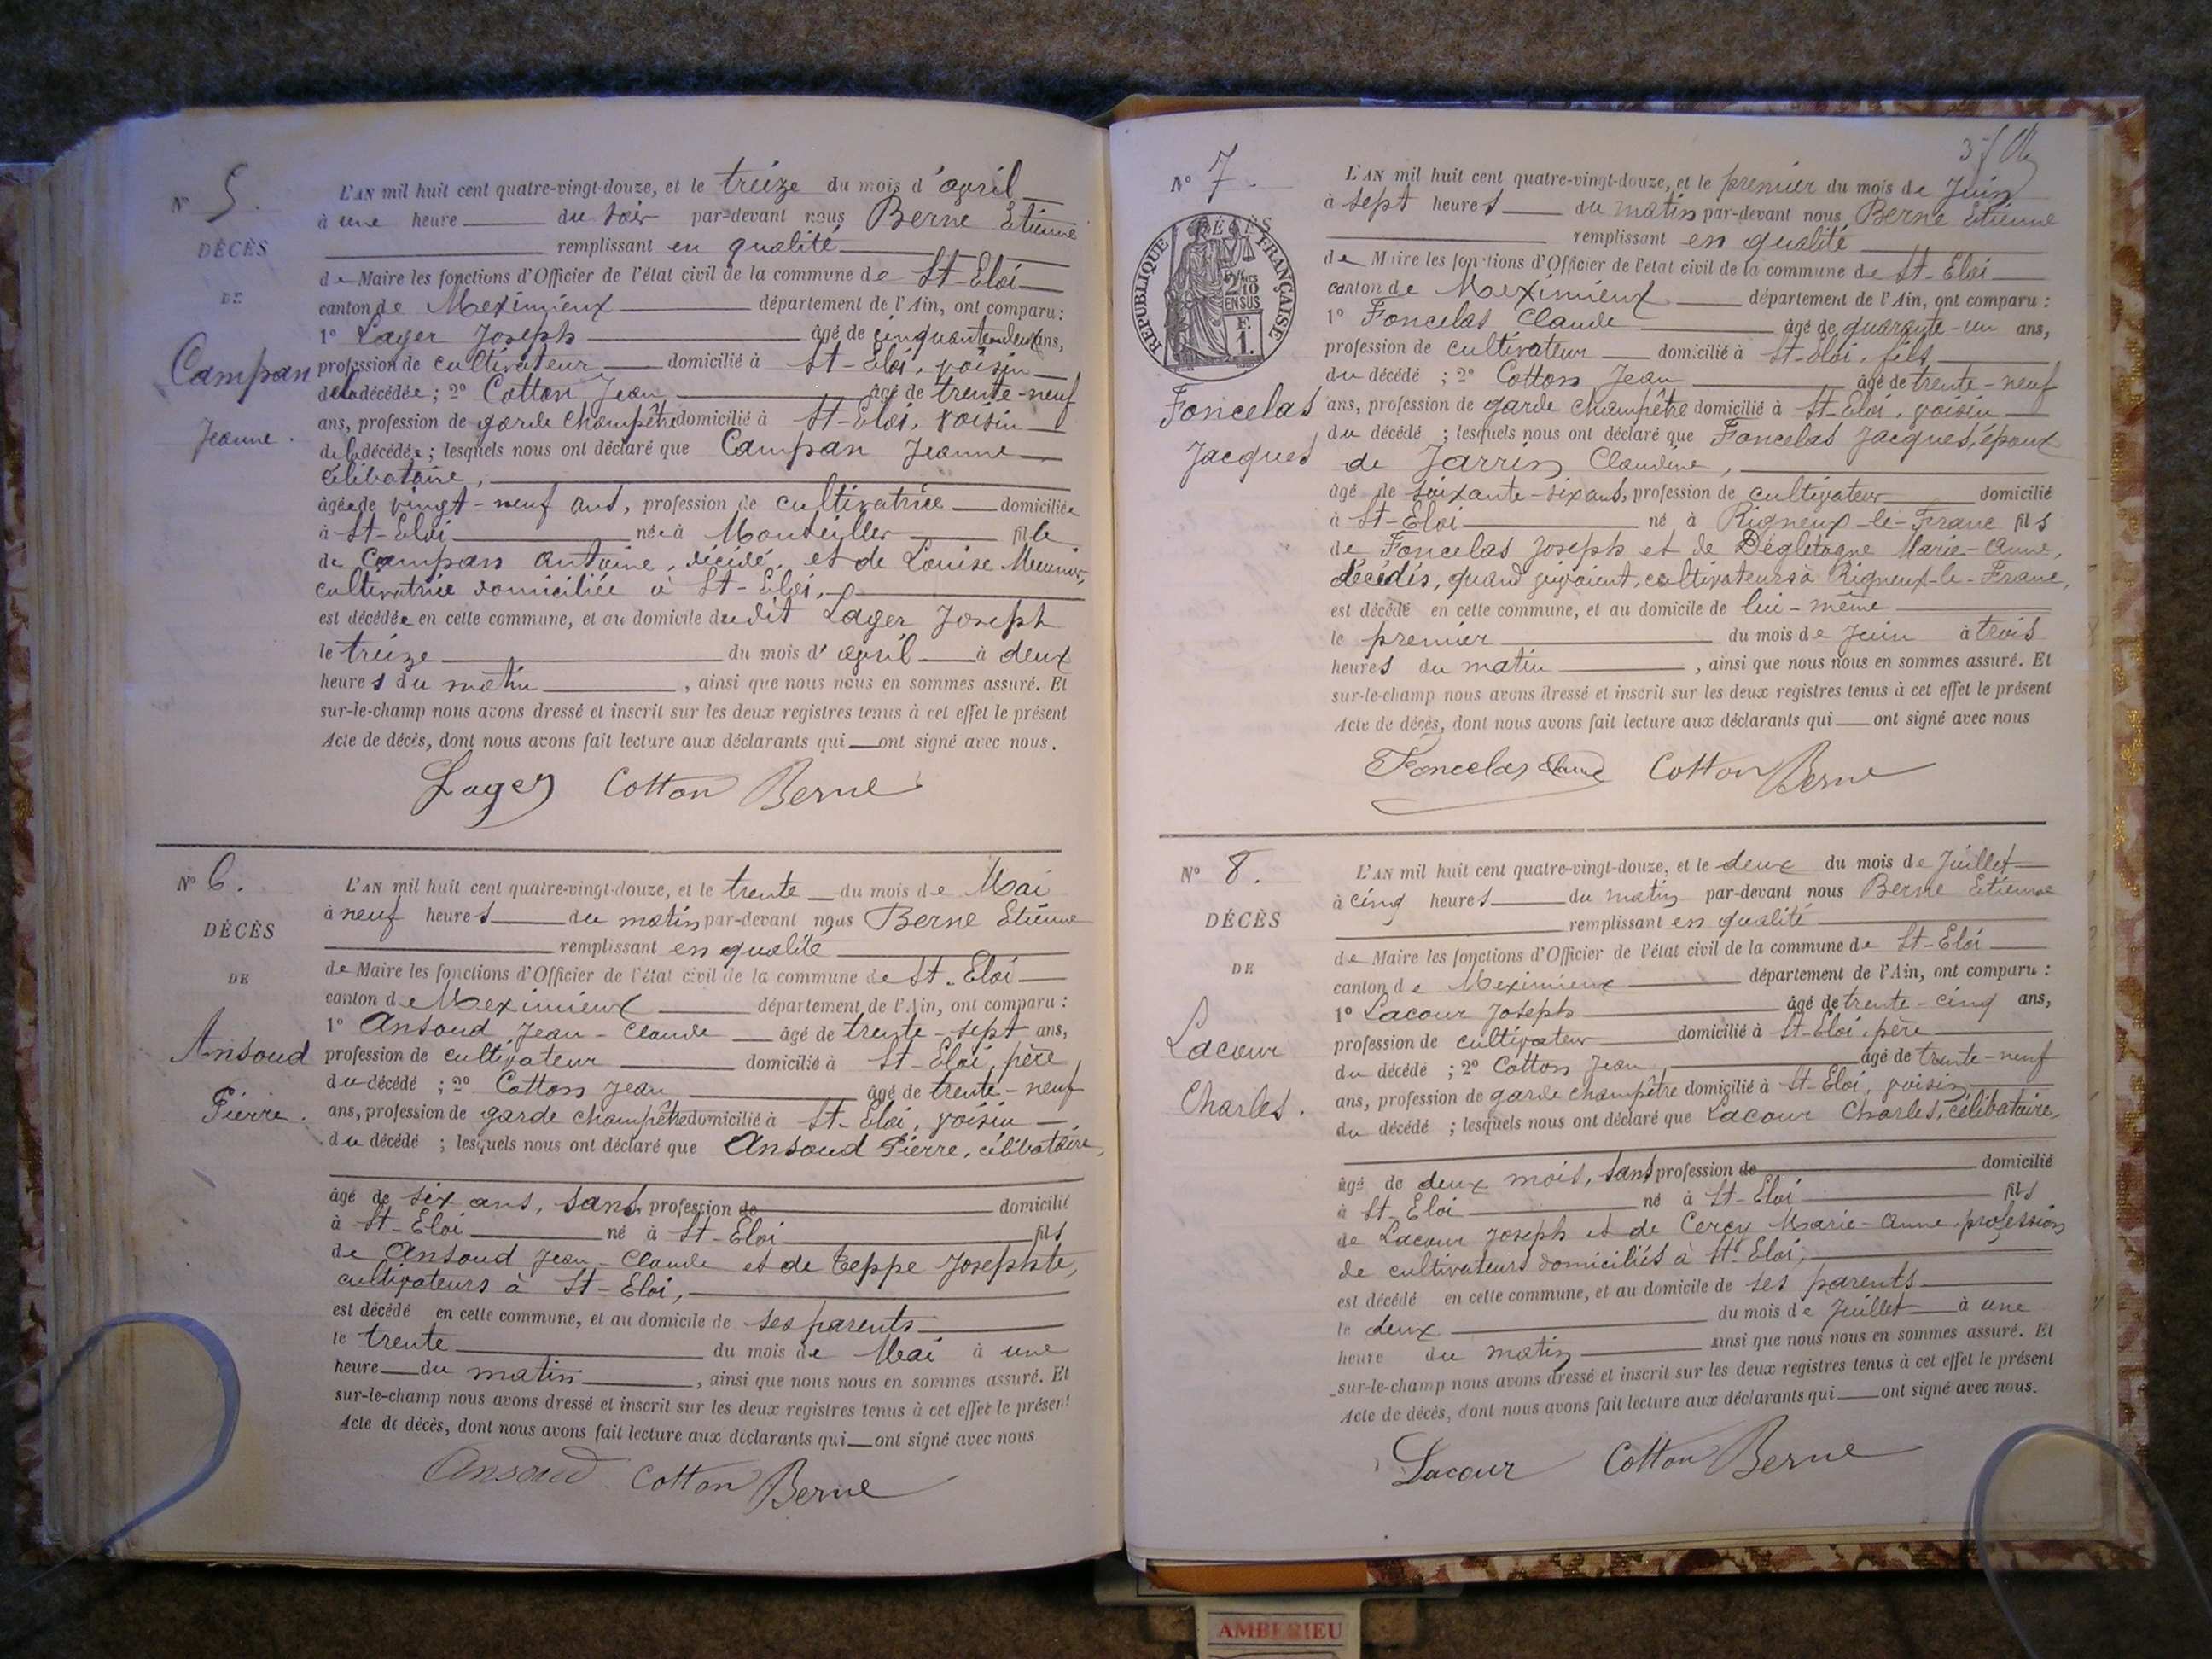 N° 5.
DÉCÈS
DE
Campan
Jeanne.
L'AN mil huit cent quatre-vingt-douze, et le treize du mois d'avril
à une heure du soir par-devant nous Berne Etienne
remplissant en qualité
de Maire les fonctions d'Officier de l'état civil de la commune de St-Eloi
canton de Meximieux département de l'Ain, ont comparu :
1° Lager Joseph âgé de cinquante-deux ans,
profession de cultivateur domicilié à St-Eloi, voisin
de la décédée ; 2° Cotton Jean âgé de trente-neuf
ans, profession de garde champêtre domicilié à St-Eloi, voisin
de la décédée ; lesquels nous ont déclaré que Campan Jeanne
célibataire,
âgée de vingt-neuf ans, profession de cultivatrice domiciliée
à St-Eloi née à Montellier fille
de Campan Antoine, décédé, et de Louise Meunier,
cultivatrice domiciliée à St-Eloi,
est décédée en cette commune, et au domicile du dit Lager Joseph
le treize du mois d'avril à deux
heures du matin, ainsi que nous nous en sommes assuré. Et
sur-le-champ nous avons dressé et inscrit sur les deux registres tenus à cet effet le présent
Acte de décès, dont nous avons fait lecture aux déclarants qui ont signé avec nous.
Lager Cotton Berne
N° 6.
DÉCÈS
DE
Ansoud
Pierre.
L'AN mil huit cent quatre-vingt-douze, et le trente du mois de Mai
à neuf heures du matin par-devant nous Berne Etienne
remplissant en qualité
de Maire les fonctions d'Officier de l'état civil de la commune de St-Eloi
canton de Meximieux département de l'Ain, ont comparu :
1° Ansoud Jean-Claude âgé de trente-sept ans,
profession de cultivateur domicilié à St-Eloi, père
du décédé ; 2° Cotton Jean âgé de trente-neuf
ans, profession de garde champêtre domicilié à St-Eloi, voisin
du décédé ; lesquels nous ont déclaré que Ansoud Pierre, célibataire,
âgé de six ans, sans profession de domicilié
à St-Eloi né à St-Eloi fils
de Ansoud Jean-Claude et de Teppe Josephte,
cultivateurs à St-Eloi,
est décédé en cette commune, et au domicile de ses parents
le trente du mois de Mai à une
heure du matin, ainsi que nous nous en sommes assuré. Et
sur-le-champ nous avons dressé et inscrit sur les deux registres tenus à cet effet le présent
Acte de décès, dont nous avons fait lecture aux déclarants qui ont signé avec nous
Ansoud Cotton Berne
N° 7.
DÉCÈS
RÉPUBLIQUE FRANÇAISE
2/10 EN SUS
F. 1.
Foncelas
Jacques
L'AN mil huit cent quatre-vingt-douze, et le premier du mois de Juin
à sept heures du matin par-devant nous Berne Etienne
remplissant en qualité
de Maire les fonctions d'Officier de l'état civil de la commune de St-Eloi
canton de Meximieux département de l'Ain, ont comparu :
1° Foncelas Claude âgé de quarante-un ans,
profession de cultivateur domicilié à St-Eloi, fils
du décédé ; 2° Cotton Jean âgé de trente-neuf
ans, profession de garde champêtre domicilié à St-Eloi, voisin
du décédé ; lesquels nous ont déclaré que Foncelas Jacques, époux
de Jarrin Claudine,
âgé de soixante-six ans, profession de cultivateur domicilié
à St-Eloi né à Rigneux-le-Franc fils
de Foncelas Joseph et de Dégletagne Marie-Anne,
décédés, quand vivaient, cultivateurs à Rigneux-le-Franc,
est décédé en cette commune, et au domicile de lui-même
le premier du mois de Juin à trois
heures du matin, ainsi que nous nous en sommes assuré. Et
sur-le-champ nous avons dressé et inscrit sur les deux registres tenus à cet effet le présent
Acte de décès, dont nous avons fait lecture aux déclarants qui ont signé avec nous
Foncelas Claude Cotton Berne
N° 8.
DÉCÈS
DE
Lacour
Charles.
L'AN mil huit cent quatre-vingt-douze, et le deux du mois de Juillet
à cinq heures du matin par-devant nous Berne Etienne
remplissant en qualité
de Maire les fonctions d'Officier de l'état civil de la commune de St-Eloi
canton de Meximieux département de l'Ain, ont comparu :
1° Lacour Joseph âgé de trente-cinq ans,
profession de cultivateur domicilié à St-Eloi, père
du décédé ; 2° Cotton Jean âgé de trente-neuf
ans, profession de garde champêtre domicilié à St-Eloi, voisin
du décédé ; lesquels nous ont déclaré que Lacour Charles, célibataire,
âgé de deux mois, sans profession de domicilié
à St-Eloi né à St-Eloi fils
de Lacour Joseph et de Cercy Marie-Anne, profession
de cultivateurs domiciliés à St-Eloi,
est décédé en cette commune, et au domicile de ses parents
le deux du mois de Juillet à une
heure du matin ainsi que nous nous en sommes assuré. Et
sur-le-champ nous avons dressé et inscrit sur les deux registres tenus à cet effet le présent
Acte de décès, dont nous avons fait lecture aux déclarants qui ont signé avec nous.
Lacour Cotton Berne
AMBERIEU